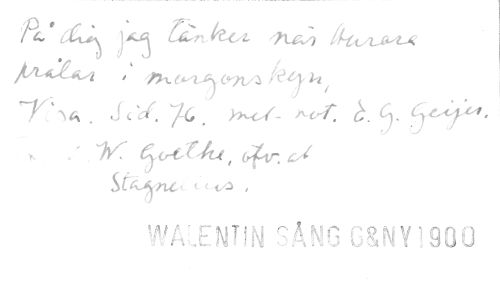 På dig jag tänker när Aurora
prålar i morgonskyn,
Visa. Sid. 76. met. not. E. G. Geijer.
W. Goethe, öfv. af
Stagnelius.
WALENTIN SÅNG G&NY 1900